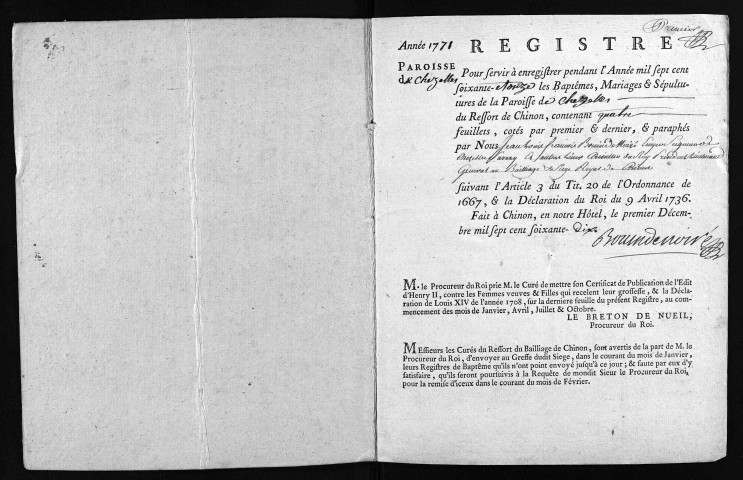 Premier
Année 1771 REGISTRE
PAROISSE
de Chezelles
Pour servir à enregistrer pendant l'Année mil sept cent
soixante-Onze les Baptêmes, Mariages & Sépultu-
tures de la Paroisse de Chezelles
du Ressort de Chinon, contenant quatre
feuillets, cotés par premier & dernier, & paraphés
par Nous Jean Louis François Bouin de Noiré Ecuyer Seigneur de
Conseiller du Roy Président Lieutenant
General au Bailliage & Siege Royal de Chinon
suivant l'Article 3 du Tit. 20 de l'Ordonnance de
1667, & la Déclaration du Roi du 9 Avril 1736.
Fait à Chinon, en notre Hôtel, le premier Décem-
bre mil sept cent soixante-Dix
Bouindenoiré
M. le Procureur du Roi prie M. le Curé de mettre son Certificat de Publication de l'Edit
d'Henry II, contre les Femmes veuves & Filles qui recelent leur grossesse, & la Décla-
ration de Louis XIV de l'année 1708, sur la derniere feuille du présent Registre, au com-
mencement des mois de Janvier, Avril, Juillet & Octobre.
LE BRETON DE NUEIL,
Procureur du Roi.
MEssieurs les Curés du Ressort du Bailliage de Chinon, sont avertis de la part de M. le
Procureur du Roi, d'envoyer au Greffe dudit Siege, dans le courant du mois de Janvier,
leurs Registres de Baptême qu'ils n'ont point envoyé jusqu'à ce jour; & faute par eux d'y
satisfaire, qu'ils seront poursuivis à la Requête de mondit Sieur le Procureur du Roi,
pour la remise d'iceux dans le courant du mois de Février.